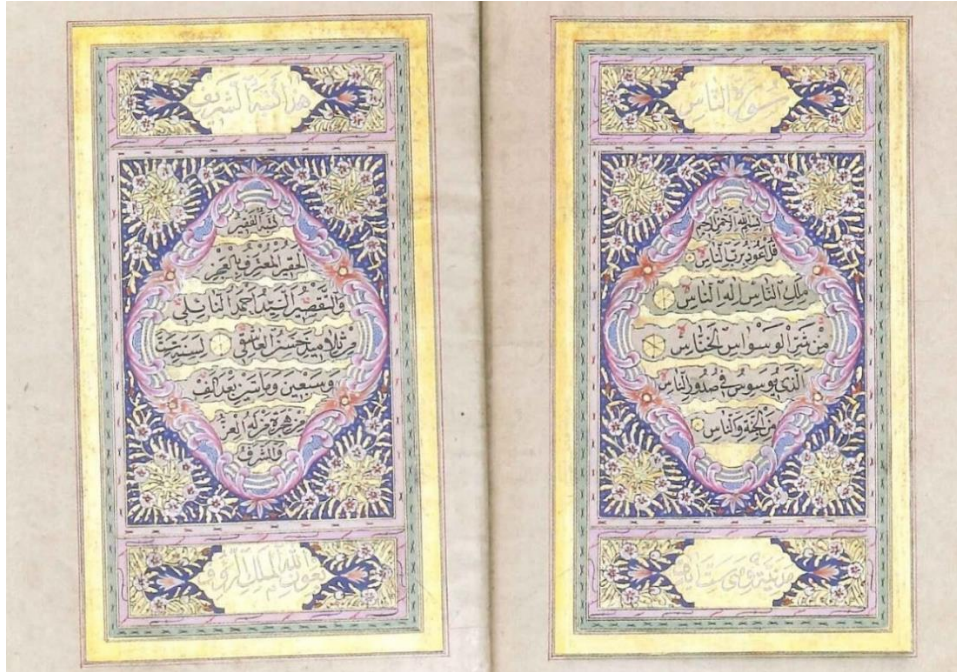 سورة الناس
بسم الله الرحمن الرحيم
قل أعوذ برب الناس
ملك الناس إله الناس
من شر الوسواس الخناس
الذي يوسوس في صدور الناس
من الجنة والناس
مدنية وهي ست آيات
الشريف
كتبه الفقير
الحقير المعترف بالعجز
والتقصير السيد أحمد النائلي
من تلاميذ حسن
وسبعين وماتين بعد الف
من هجرة من له العز
والشرف
بعون الله الملك الرؤف